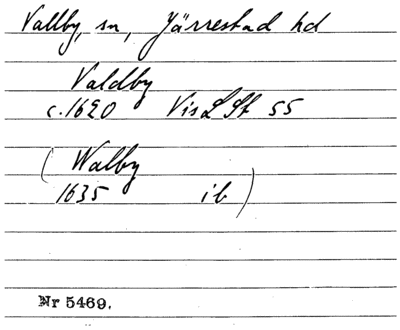 Vallby, sn, Järrestad hd
Valdby
c. 1620 Vis L St 55
( Walby
1635 ib )
Nr 5469.